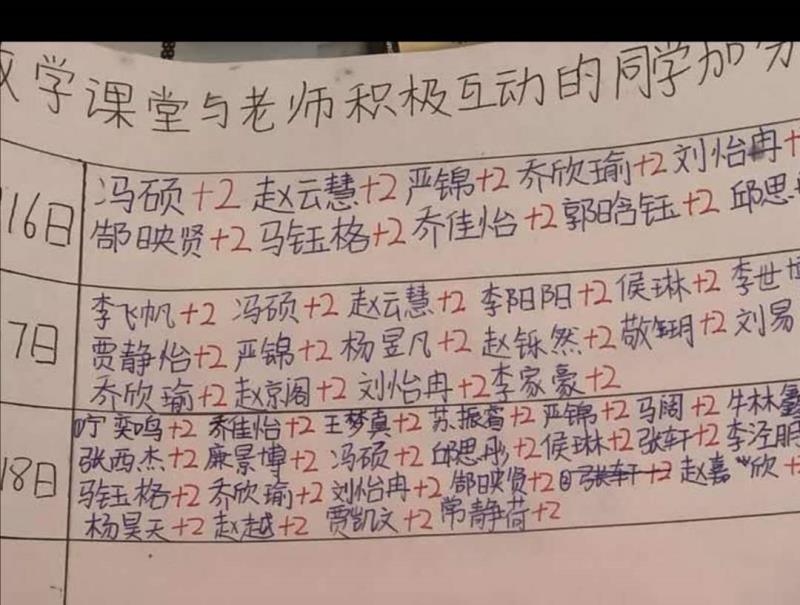 学课堂与老师积极互动的同学加分
16日 冯硕+2 赵云慧+2 严锦+2 乔欣瑜+2 刘怡冉+
郜映贤+2 马钰格+2 乔佳怡+2 郭晗钰+2 邱思
7日 李飞帆+2 冯硕+2 赵云慧+2 李阳阳+2 侯琳+2 李世博
贾静怡+2 严锦+2 杨昱凡+2 赵铄然+2 敬钰玥+2 刘易
乔欣瑜+2 赵京阁+2 刘怡冉+2 李家豪+2
18日 奕鸣+2 乔佳怡+2 王梦真+2 苏振睿+2 严锦+2 马阔+2 牛林鑫
张西杰+2 廉景博+2 冯硕+2 邱思彤+2 侯琳+2 张轩+2 李泾鹏
马钰格+2 乔欣瑜+2 刘怡冉+2 郜映贤+2 张轩+2 赵嘉欣+
杨昊天+2 赵越+2 贾凯文+2 常静荷+2